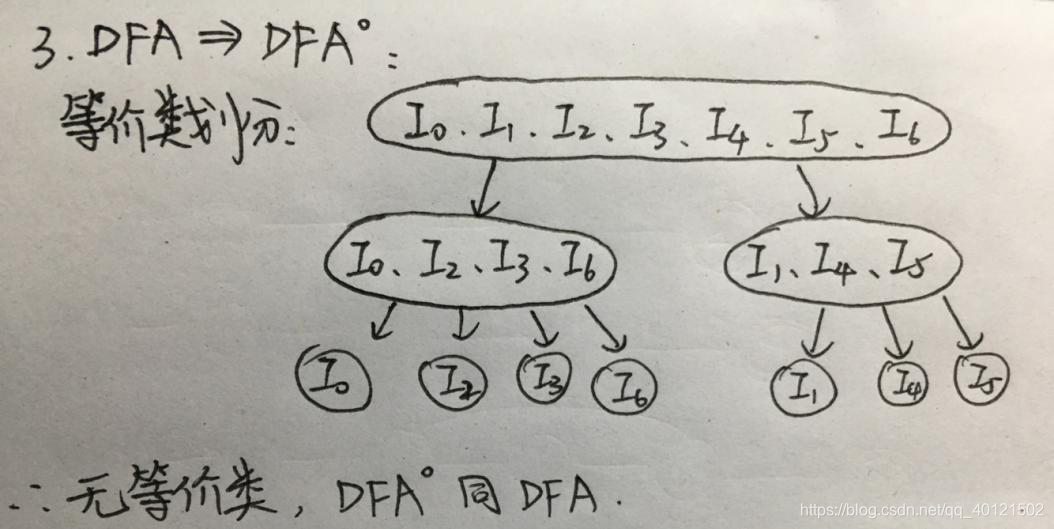 3. DFA ⇒ DFA°:
等价类划分:
I₀、I₁、I₂、I₃、I₄、I₅、I₆
I₀、I₂、I₃、I₆
I₁、I₄、I₅
I₀
I₂
I₃
I₆
I₁
I₄
I₅
∴ 无等价类, DFA° 同 DFA.
https://blog.csdn.net/qq_40121502